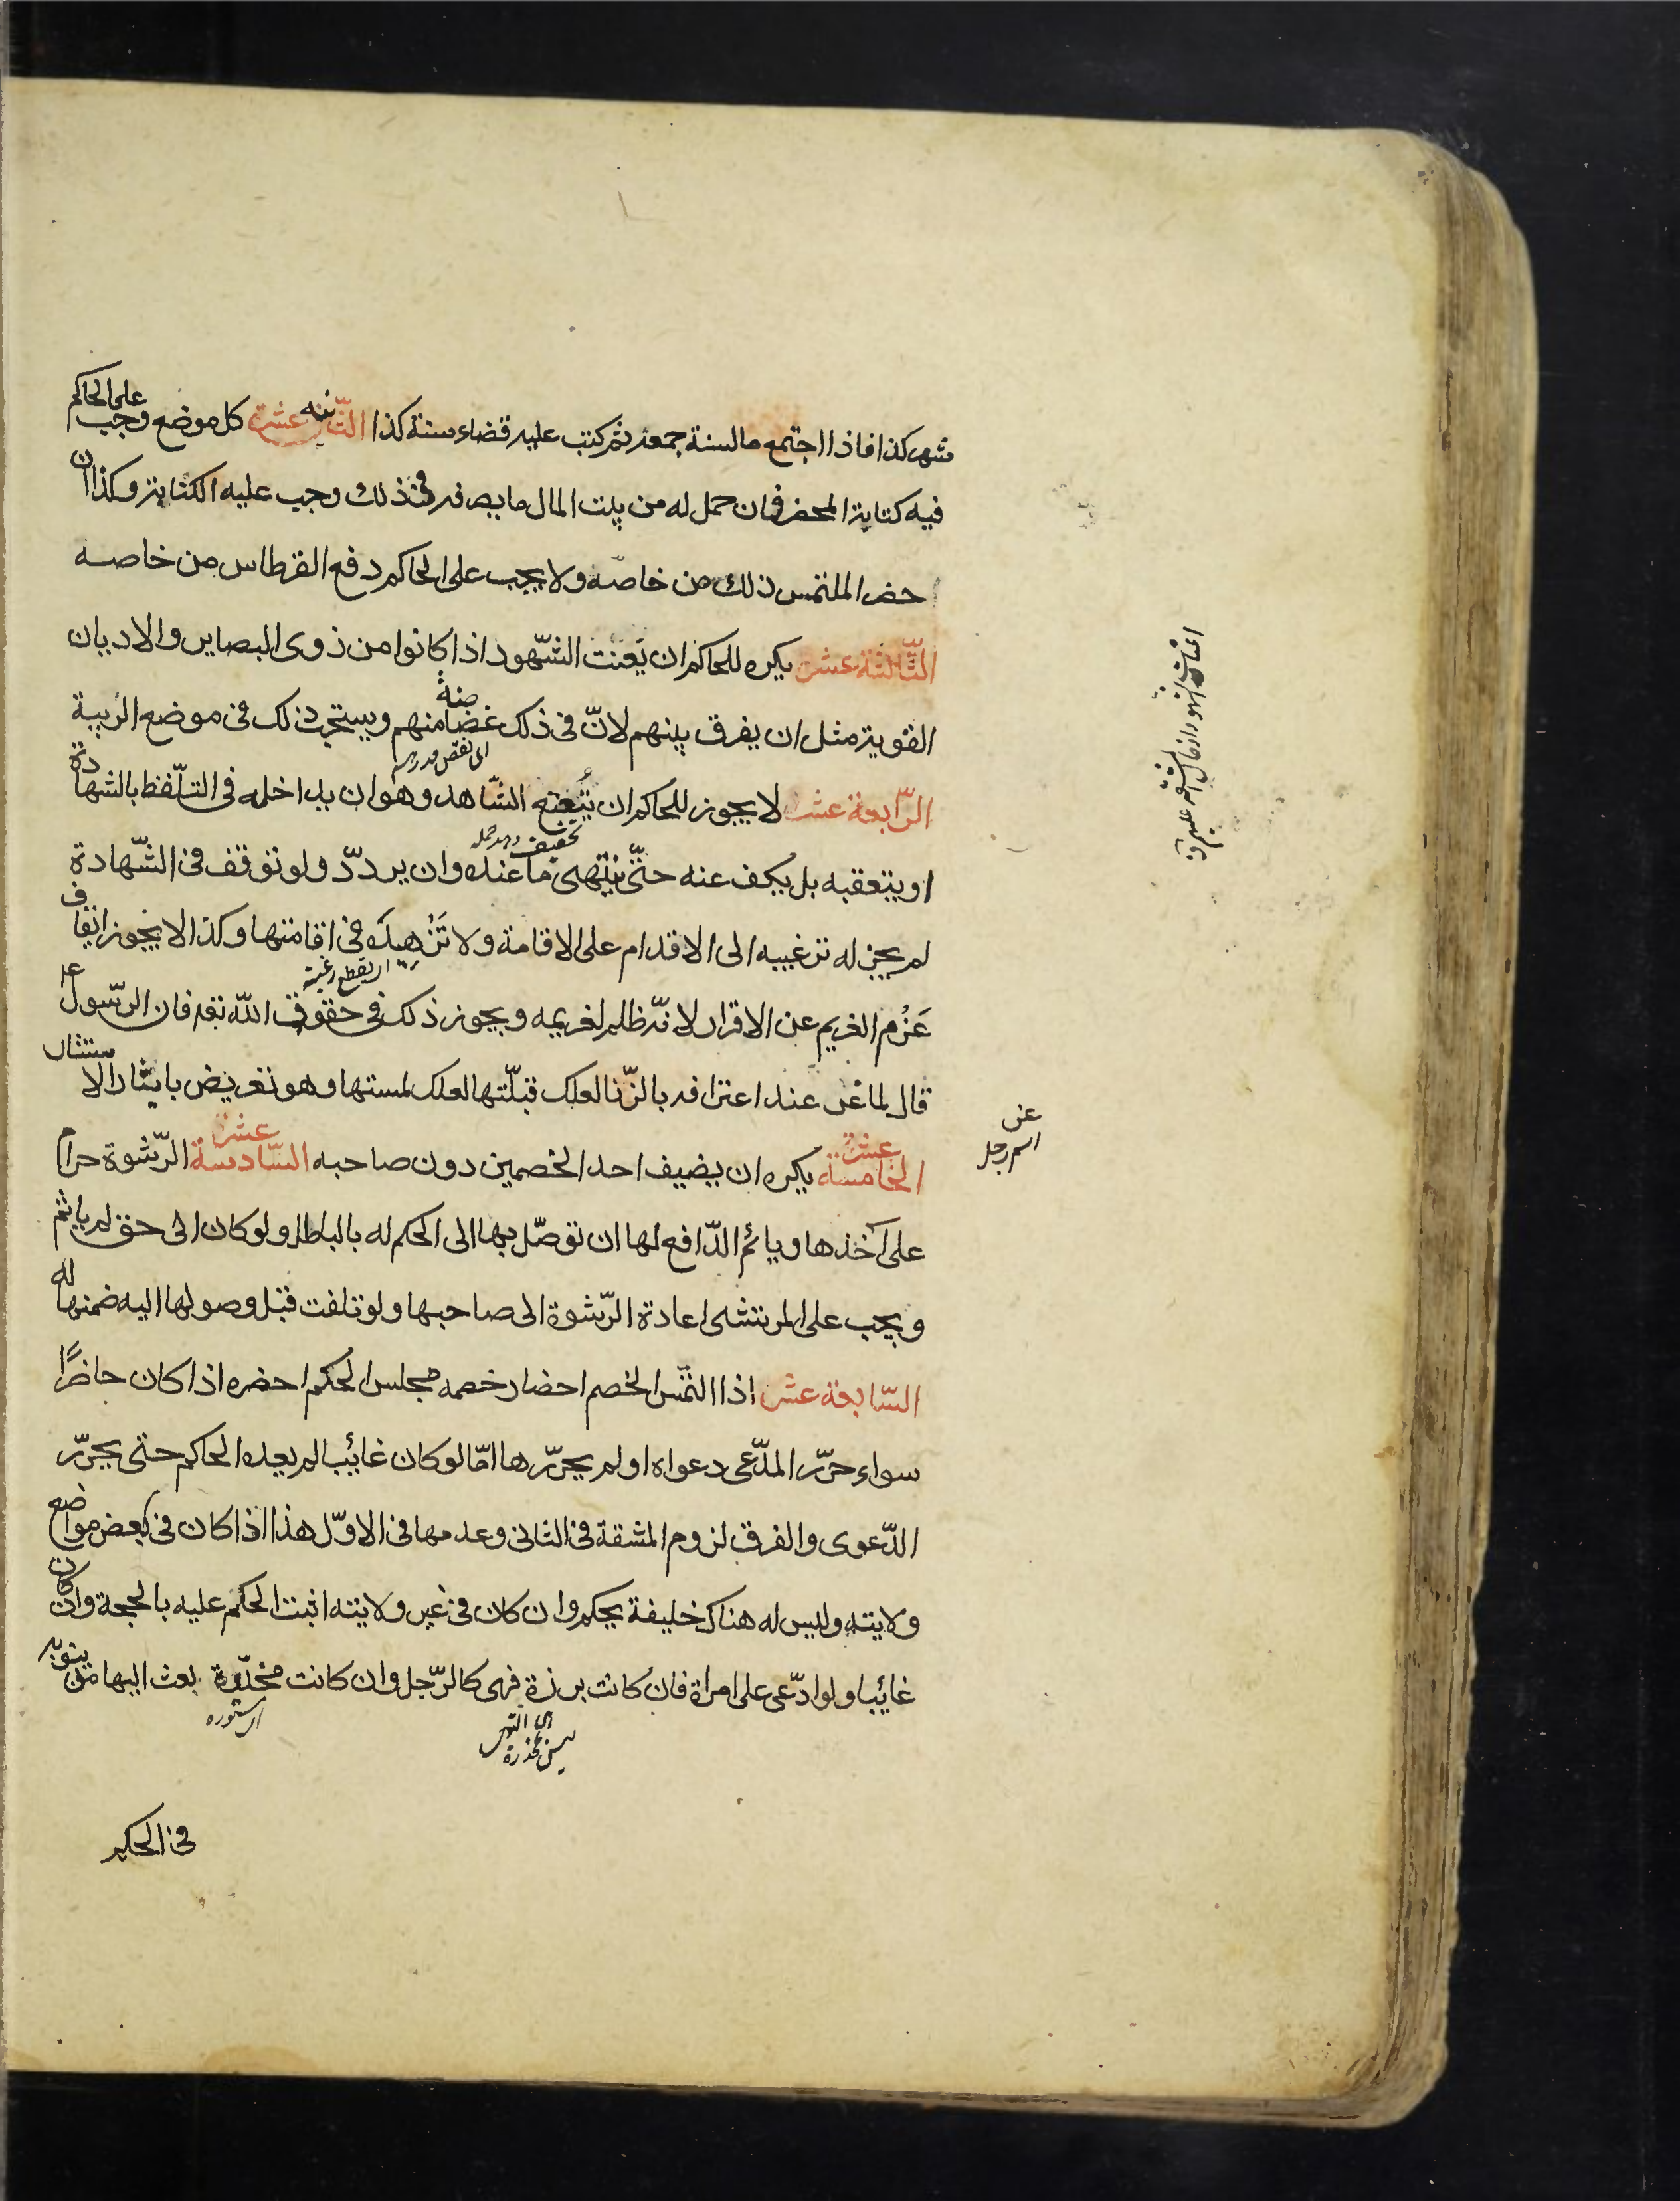 شهر كذا فاذا اجتمع ما لسنة جمعه ثم كتب عليه قضاء سنة كذا الثّانيه عشرة كل موضع وجب على الحاكم
فيه كتابة المحضر فان حمل له من بيت المال ما يصرفه فى ذلك وجب عليه الكتابة وكذا ان
احضر الملتمس ذلك من خاصّه ولا يجب على الحاكم دفع القرطاس من خاصه
الثّالثة عشر يكره للحاكم ان يعنت الشّهود اذا كانوا من ذوى البصاير والاديان
القوية مثل ان يفرق بينهم لانّ فى ذلك غضاضةً منهم ويستحب ذلك فى موضع الريبة
الرّابعة عشر لا يجوز للحاكم ان يُتعتع الشّاهد وهو ان يداخله فى التلّفظ بالشهادة
او يتعقبه بل يكف عنه حتّى ينتهى ما عنده وان يردّد ولو توقف فى الشّهادة
لم يجز له ترغيبه الى الاقدام على الاقامة ولا تَزْهيدَه فى اقامتها وكذا لا يجوز ايقاف
عَزْم الغريم عن الاقرار لانّه ظلم لغريمه ويجوز ذلك فى حقوق الله تعه فان الرّسول ع
قال لماعز عند اعترافه بالزّنا لعلك قبلّتها لعلك لمستها وهو تعريض بايثار الاستتار
الخامسة عشرة يكره ان يضيف احد الخصمين دون صاحبه السّادسة عشر الرّشوة حرام
على آخذها وياثم الدّافع لها ان توصّل بها الى الحكم له بالباطل ولو كان الى حق لم ياثم
ويجب على المرتشى اعادة الرّشوة الى صاحبها ولو تلفت قبل وصولها اليه ضمنها له
السّابعة عشر اذا التمس الخصم احضار خصمه مجلس الحكم احضره اذا كان حاضرًا
سواء حرّر المدّعى دعواه او لم يحرّرها امّا لو كان غائبا لم يعده الحاكم حتى يحرّر
الدّعوى والفرق لزوم المشقة فى الثانى وعدمها فى الاوّل هذا اذا كان فى بعض مواضع
ولايته وليس له هناك خليفة يحكم وان كان فى غير ولايته اثبت الحكم عليه بالحجة وان كان
غائبا ولو ادّعى على امراة فان كانت برزة فهى كالرّجل وان كانت مخدّرة بعث اليها من ينوبه
اى مستوره
اى التى ليس بمخدرة
عز
اسم رجل
فى الحكم